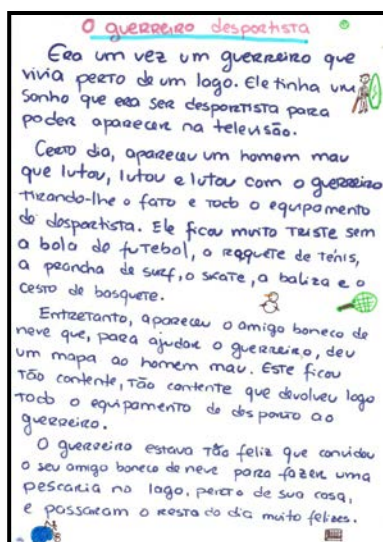 O guerreiro desportista
Era um vez um guerreiro que
vivia perto de um lago. Ele tinha um
sonho que era ser desportista para
poder aparecer na televisão.
Certo dia, apareceu um homem mau
que lutou, lutou e lutou com o guerreiro
tirando-lhe o fato e todo o equipamento
de desportista. Ele ficou muito triste sem
a bola de futebol, a raquete de ténis,
a prancha de surf, o skate, a baliza e o
cesto de basquete.
Entretanto, apareceu o amigo boneco de
neve que, para ajudar o guerreiro, deu
um mapa ao homem mau. Este ficou
tão contente, tão contente que devolveu logo
todo o equipamento de desporto ao
guerreiro.
O guerreiro estava tão feliz que convidou
o seu amigo boneco de neve para fazer uma
pescaria no lago, perto de sua casa,
e passaram o resto do dia muito felizes.